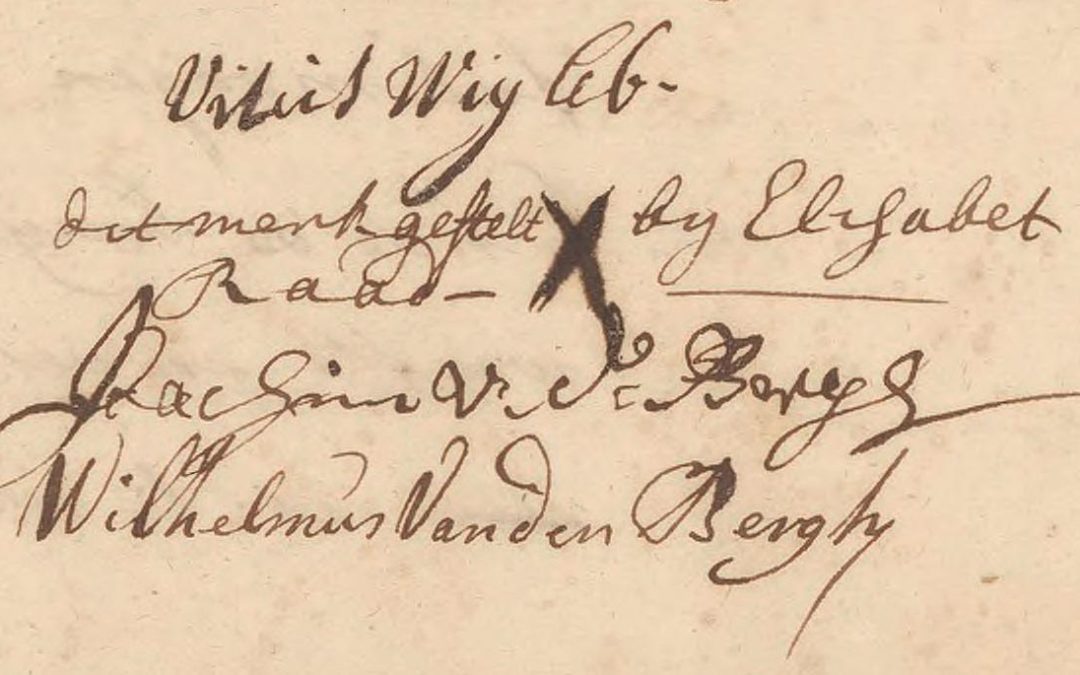 Vitus Wigleb.
dit merk gestelt X by Elisabet
Raad –
Joachim V. De Bergh
Wilhelmus Vanden Bergh